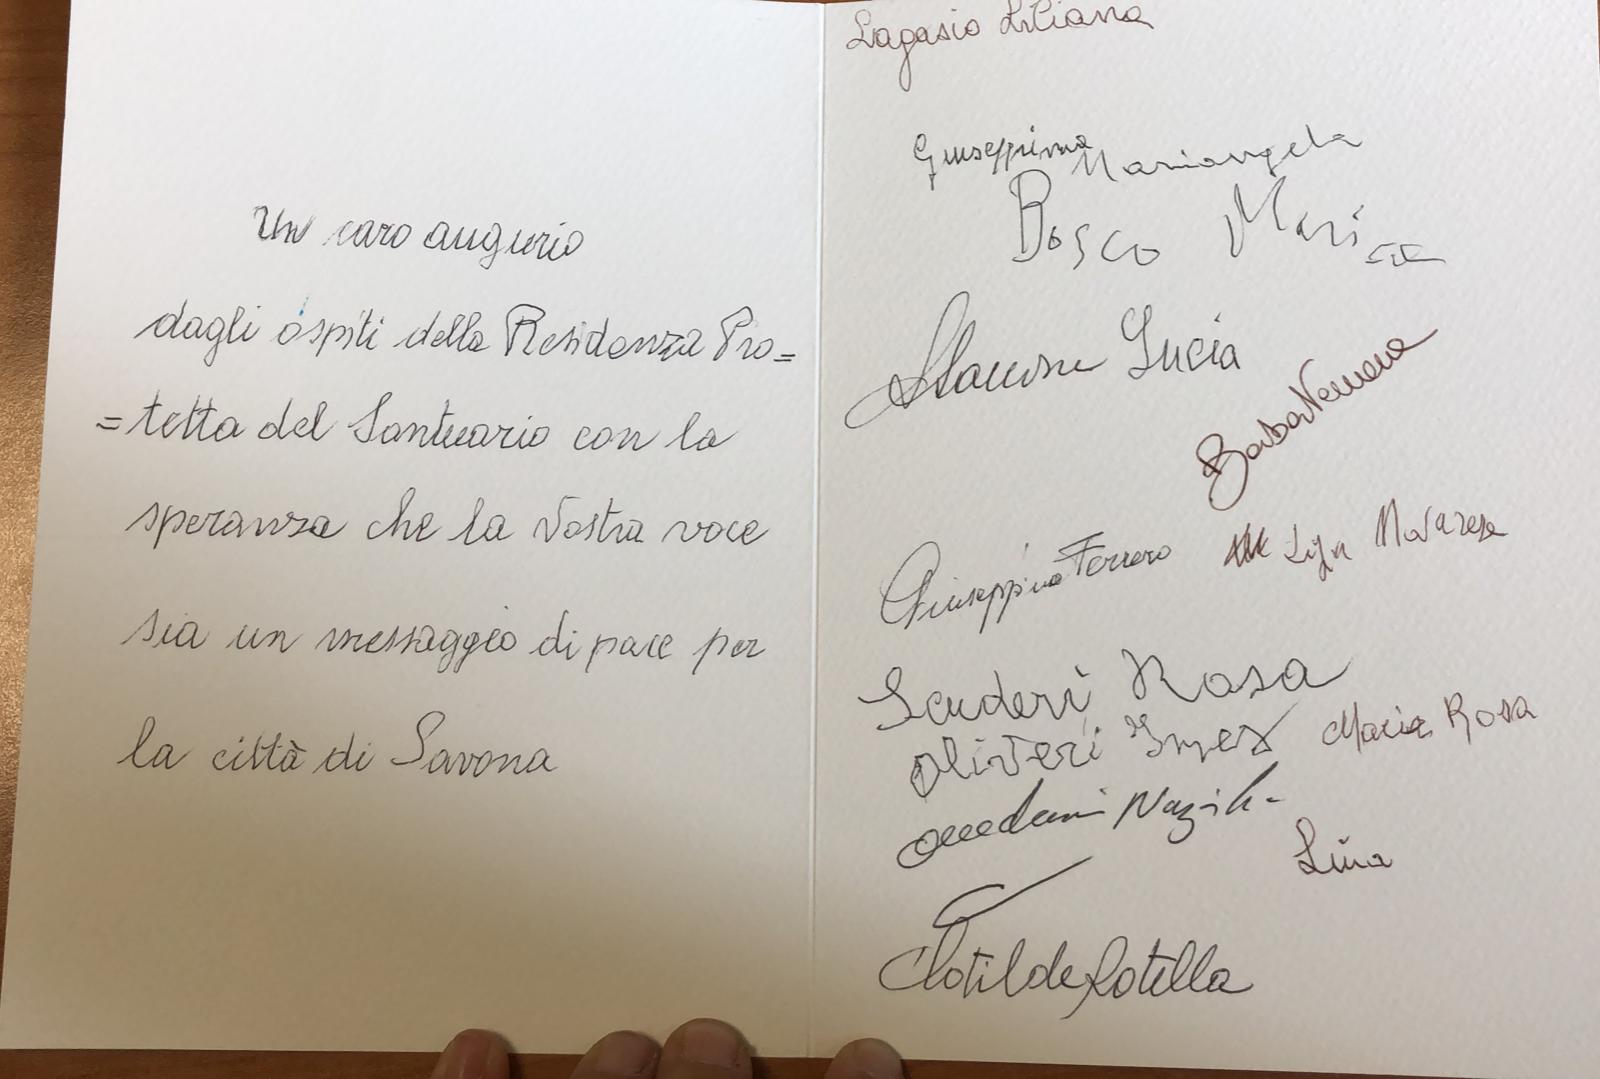 Un caro augurio
dagli ospiti della Residenza Pro=
=tetta del Santuario con la
speranza che la Vostra voce
sia un messaggio di pace per
la città di Savona
Lagasio Liliana
Giuseppina
Mariangela
Bosco Maria
Lucia
Giuseppina Ferrero
Scuderi Rosa
Oliveri Ines
Maria Rosa
Lina
Clotilde Rotella